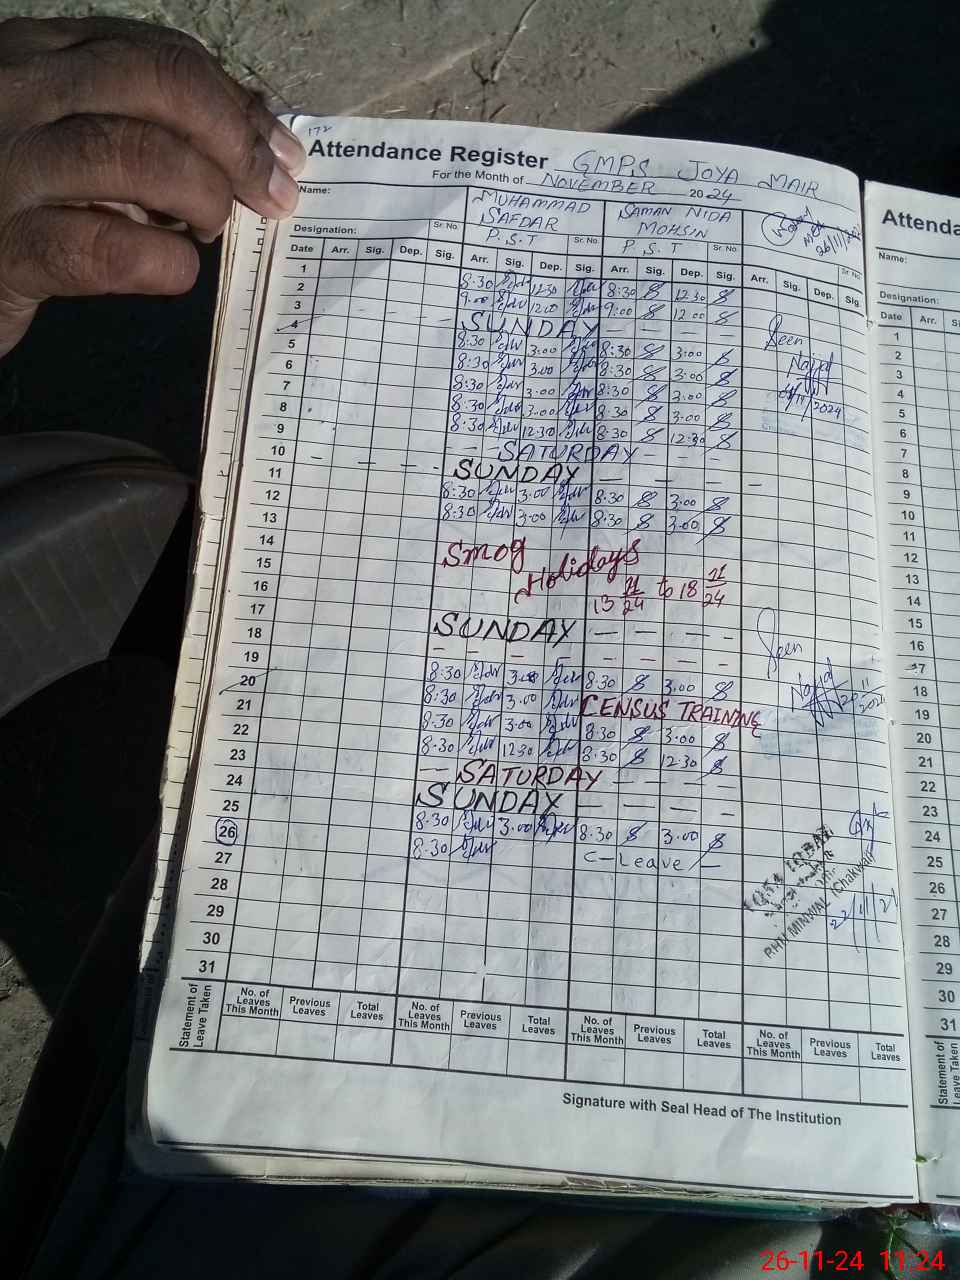 172
Attendance Register GMPS JOYA MAIR
For the Month of NOVEMBER 2024
Name: MUHAMMAD SAFDAR SAMAN NIDA MOHSIN
26/11/
Designation: Sr. No. P.S.T Sr. No. P.S.T Sr. No. Sr. No.
Date Arr. Sig. Dep. Sig. Arr. Sig. Dep. Sig. Arr. Sig. Dep. Sig. Arr. Sig. Dep. Sig.
1 8:30 12:30 8:30 12:30
2 9:00 12:00 9:00 12:00
3 SUNDAY
4 8:30 3:00 8:30 3:00 Seen
5 8:30 3:00 8:30 3:00
6 8:30 3:00 8:30 3:00
7 8:30 3:00 8:30 3:00 11/2024
8 8:30 12:30 8:30 12:30
9 SATURDAY
10 SUNDAY
11 8:30 3:00 8:30 3:00
12 8:30 3:00 8:30 3:00
13
14 Smog Holidays
15 13 11/24 to 18 11/24
16
17 SUNDAY
18 Seen
19 8:30 3:00 8:30 3:00
20 8:30 3:00 CENSUS TRAINING 20 11 2024
21 8:30 3:00 8:30 3:00
22 8:30 12:30 8:30 12:30
23 SATURDAY
24 SUNDAY
25 8:30 3:00 8:30 3:00
26 8:30 C-Leave
27
28
29
30
31
IQBAL
MINWAL (Chakwal)
22/11/
Statement of Leave Taken
No. of Leaves This Month Previous Leaves Total Leaves No. of Leaves This Month Previous Leaves Total Leaves No. of Leaves This Month Previous Leaves Total Leaves No. of Leaves This Month Previous Leaves Total Leaves
Signature with Seal Head of The Institution
Attenda
Name:
Designation:
Date Arr.
1
2
3
4
5
6
7
8
9
10
11
12
13
14
15
16
17
18
19
20
21
22
23
24
25
26
27
28
29
30
31
Statement of Leave Taken
26-11-24 11:24